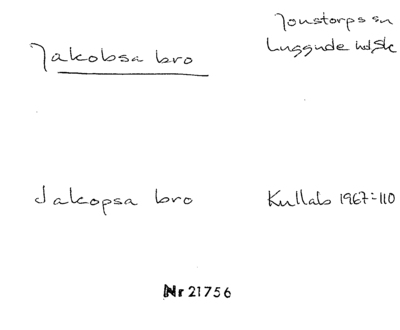 Jonstorps sn
Luggude hd, Sk
Jakobsa bro
Jakopsa bro
Kullab 1967:110
Nr 21756